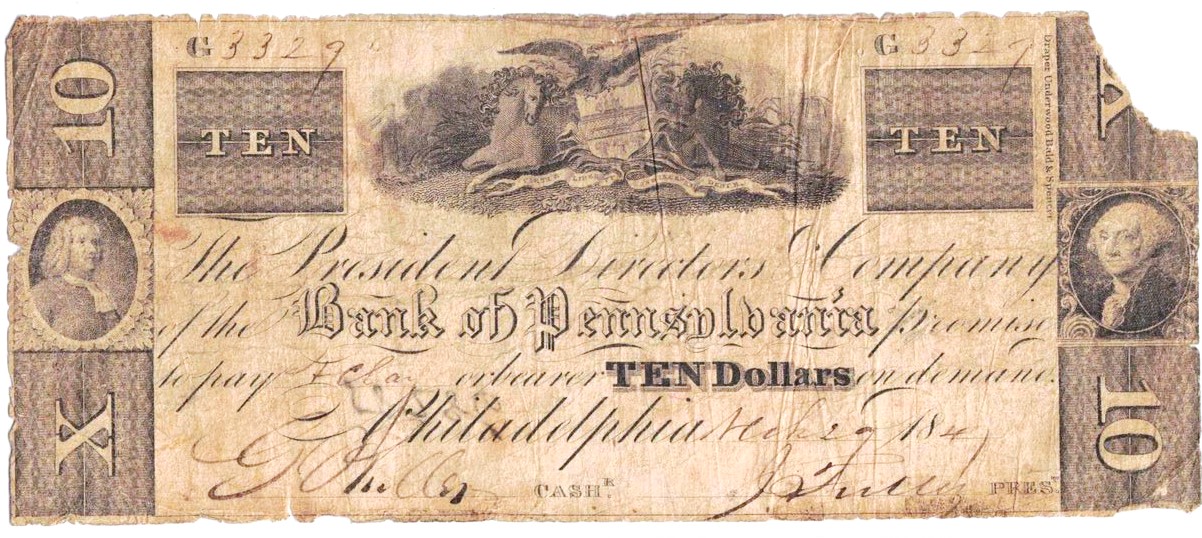 10
G 3329
G 3329
X
TEN
TEN
Draper Underwood Bald & Spencer
The President Directors & Company
of the Bank of Pennsylvania promise
to pay or bearer TEN Dollars on demand.
Philadelphia 29 184
CASHR.
PREST.
X
10